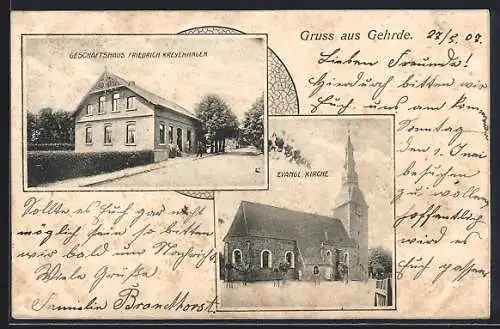 Gruss aus Gehrde. 27/5. 07.
GESCHÄFTSHAUS FRIEDRICH KREYENHAGEN
EVANGL. KIRCHE
Lieben Freunde!
Hierdurch bitten wir
Euch, uns am kom
Sonntag
den 1. Juni
besuchen
zu wollen
hoffentlich
wird es
Euch passen
Sollte es Euch gar nicht
möglich sein so bitten
wir bald um Nachricht
Viele Grüße
Familie Brandhorst.